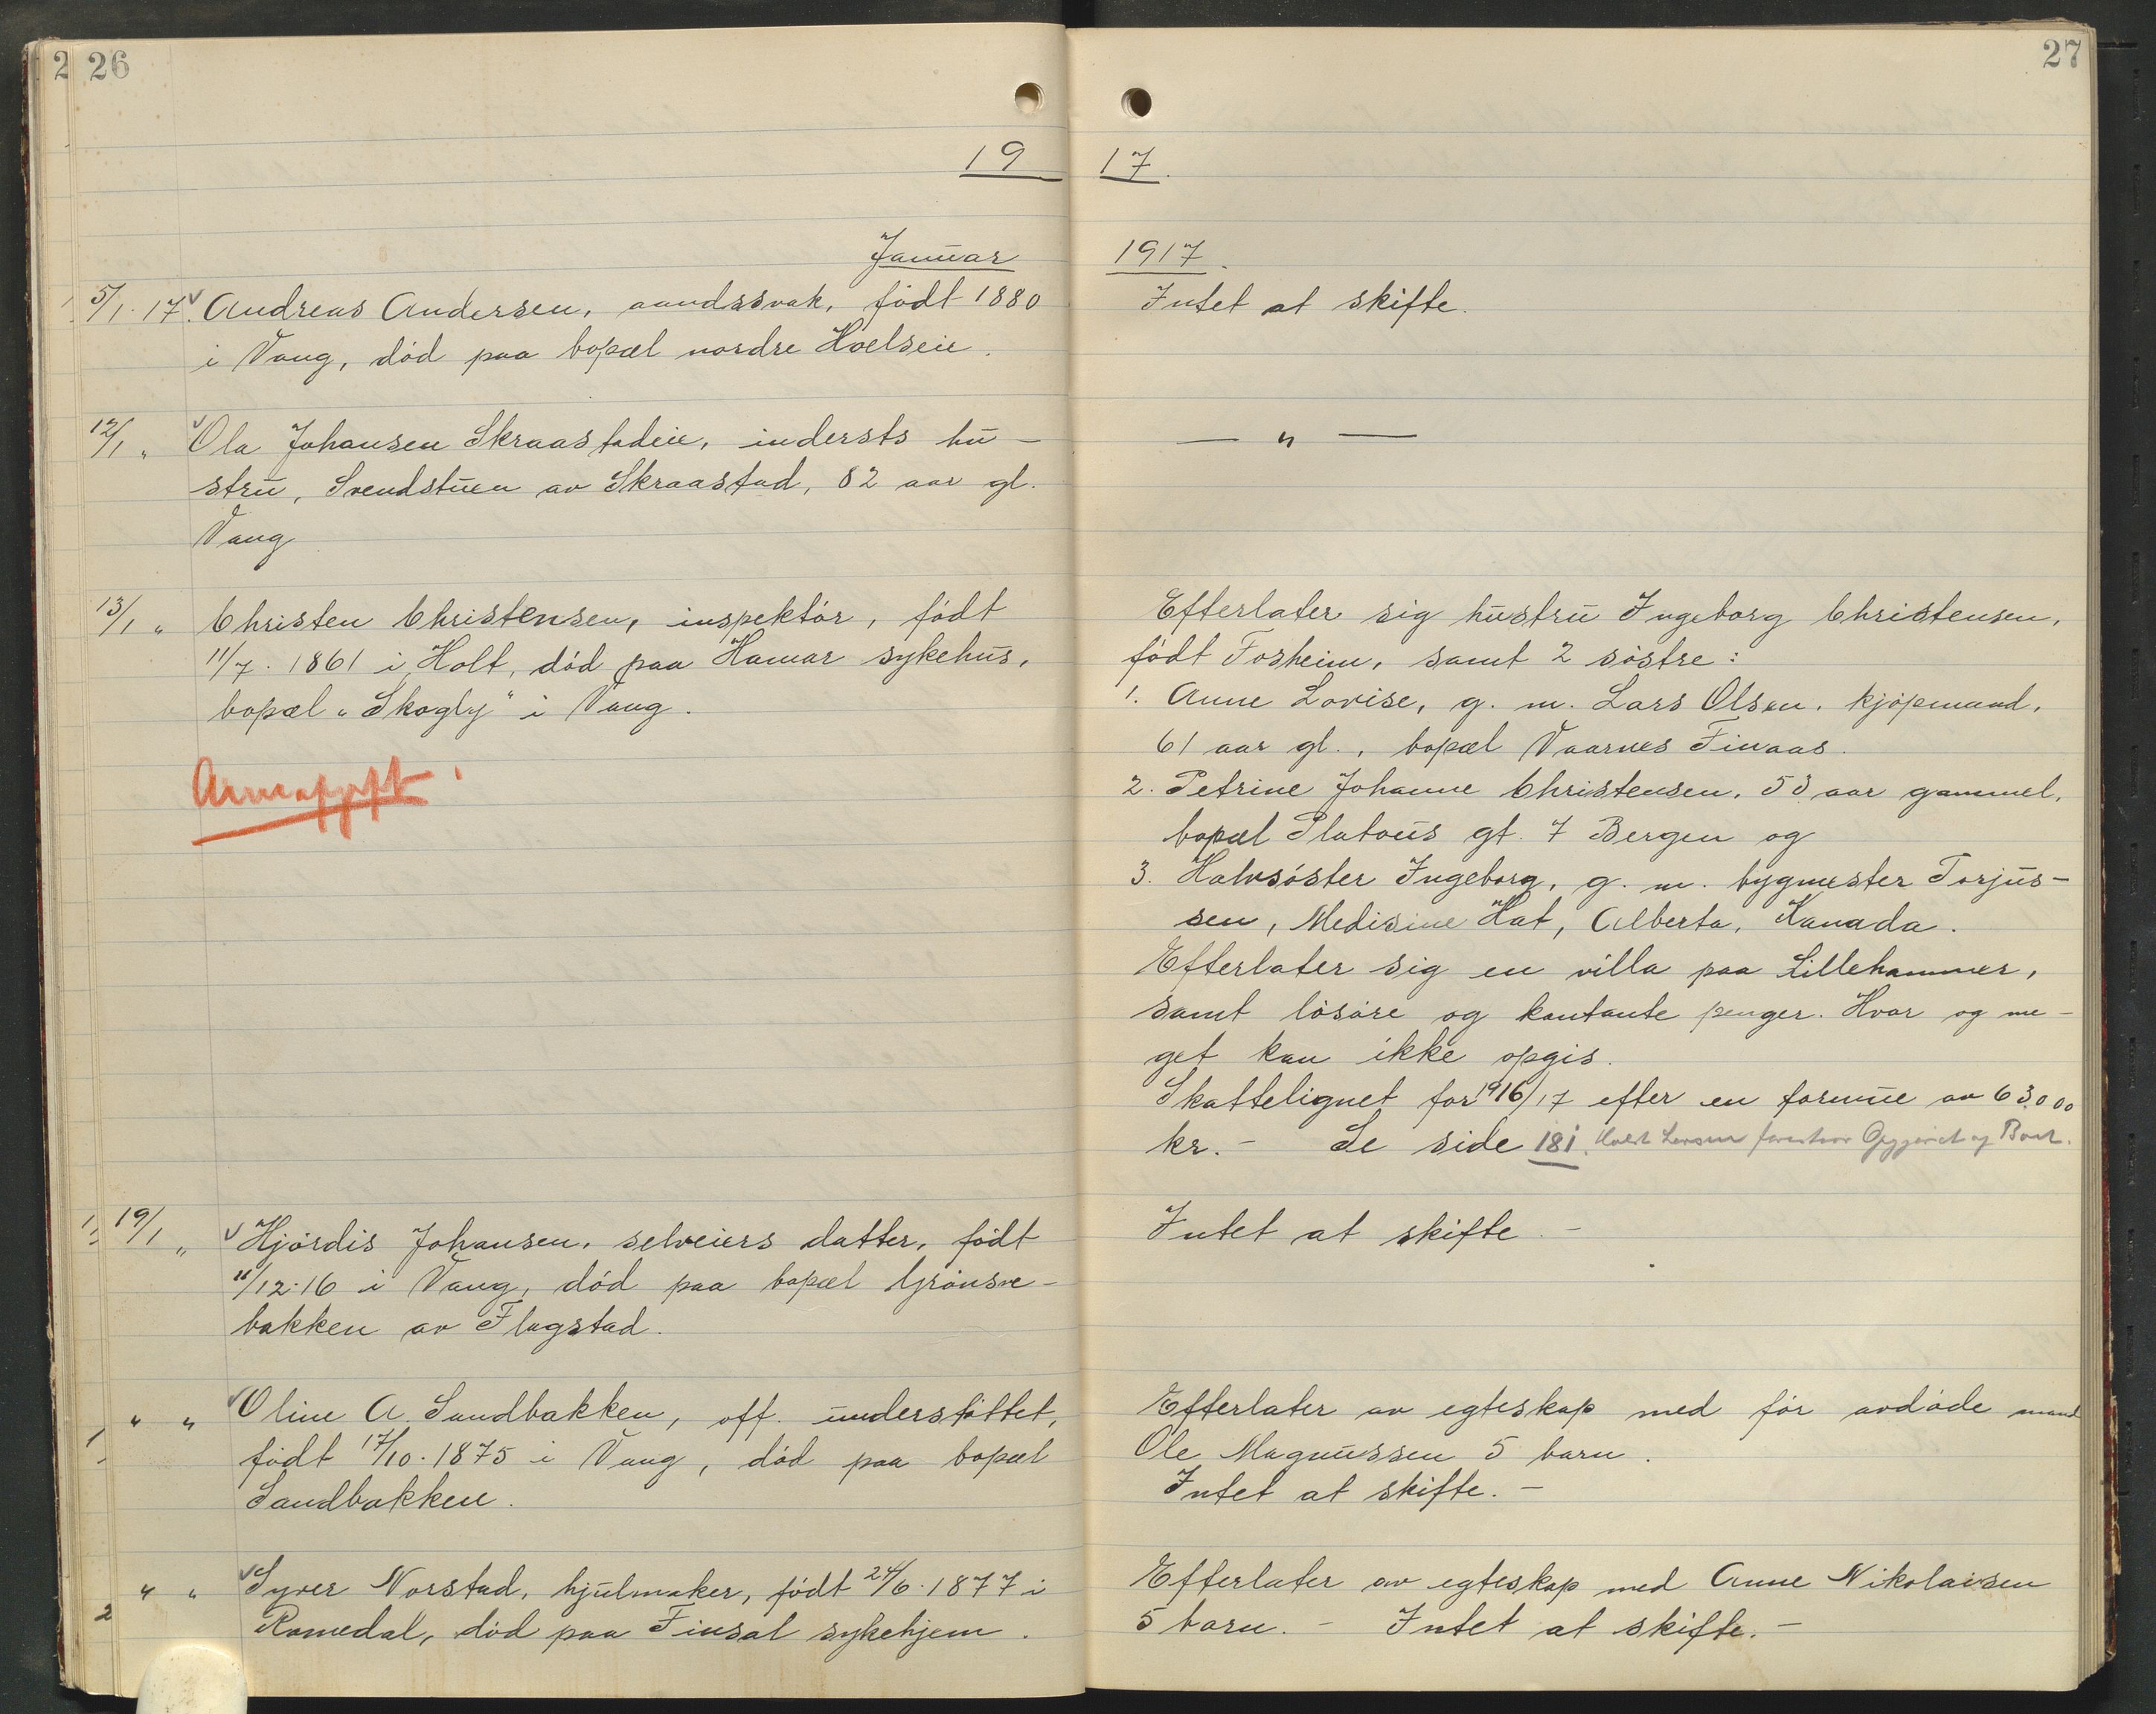 2 26
19
Januar
5/1. 17. Andreas Andersen, aandssvak, født 1880
i Vang, død paa bopæl nordre Hoelseie.
12/1 „ Ola Johansen Skraastadeie, indersts hu-
stru, Svendstuen av Skraastad, 82 aar gl.
Vang
13/1 „ Christen Christensen, inspektør, født
11/7. 1861 i Holt, død paa Hamar sykehus,
bopæl „Skogly" i Vang.
Arveafgift
19/1 „ Hjørdis Johansen, selveiers datter, født
11/12.16 i Vang, død paa bopæl Grønsve-
bakken av Flagstad.
„ „ Oline A. Sandbakken, off. understøttet,
født 17/10. 1875 i Vang, død paa bopæl
Sandbakken.
„ „ Syver Norstad, hjulmaker, født 24/6. 1877 i
Romedal, død paa Finsal sykehjem.
27
17.
1917.
Intet at skifte.
— „ —
Efterlater sig hustru Ingeborg Christensen,
født Fosheim, samt 2 søstre:
1. Anne Lovise, g. m. Lars Olsen, kjøpmand,
61 aar gl., bopæl Vaarnes Finaas.
2. Petrine Johanne Christensen, 53 aar gammel,
bopæl Platous gt. 7 Bergen og
3. Halvsøster Ingeborg, g. m. bygmester Torjus-
sen, Medisine Hat, Alberta, Kanada.
Efterlater sig en villa paa Lillehammer,
samt løsøre og kontante penger. Hvor og me-
get kan ikke opgis.
Skattelignet for 1916/17 efter en formue av 63000
kr. - Se side 181. Larsen Opgjøret og Boet.
Intet at skifte -
Efterlater av egteskap med før avdøde mand
Ole Magnussen 5 barn.
Intet at skifte. -
Efterlater av egteskap med Anne Nikolaisen
5 barn. - Intet at skifte. -